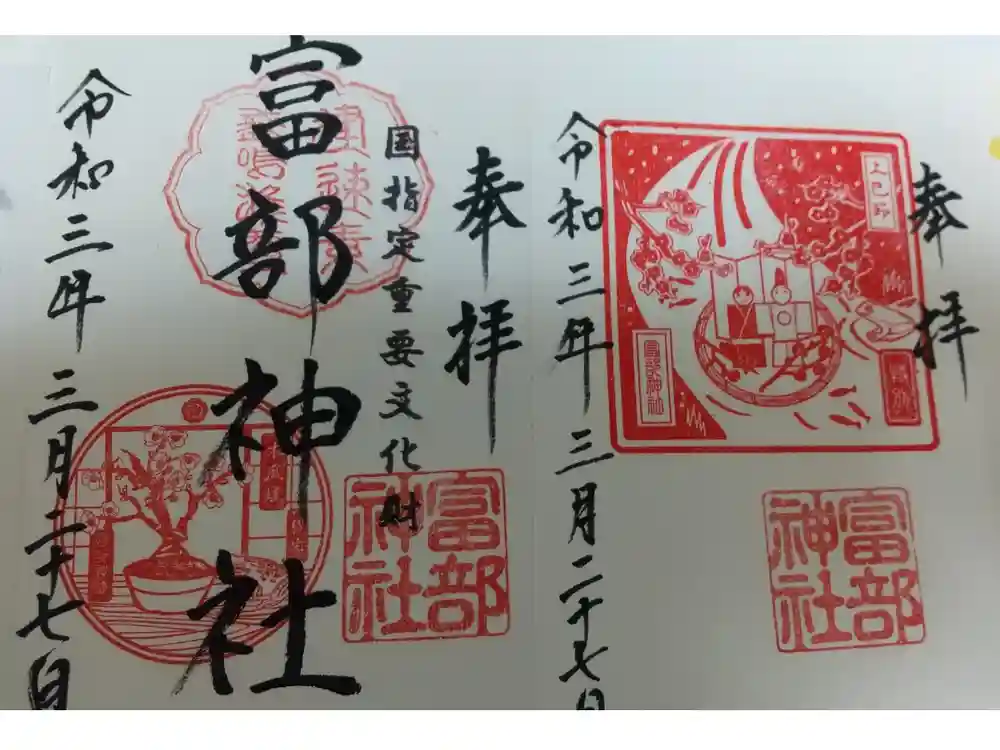 奉拝
上巳印
冨部神社
令和三年 三月二十七日
富部神社
奉拝
国指定重要文化財
富部神社
富部神社
令和三年 三月二十七日